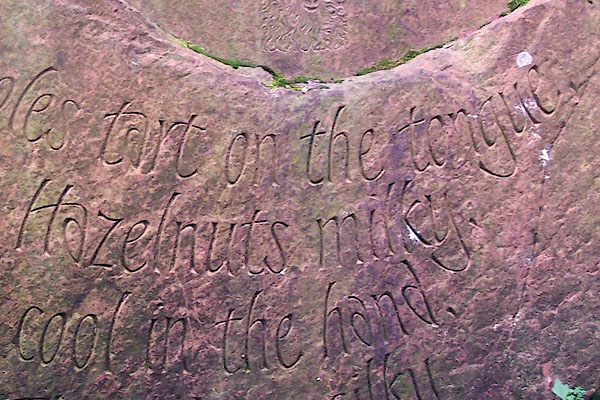 tart on the tongue.
Hazelnuts milky.
cool in the hand.